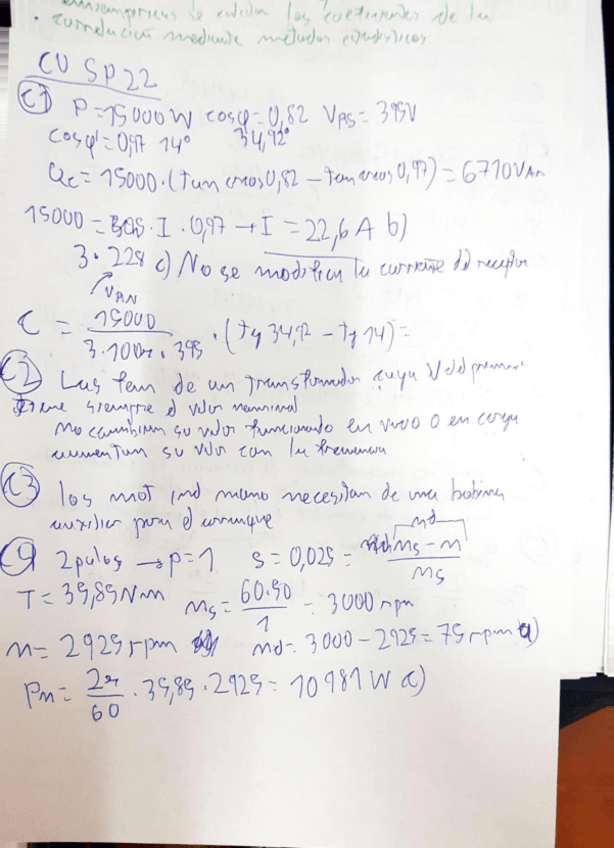 se calculan los coeficientes de la
correlación mediante métodos estadísticos
CU SP22
C1 P=15000W cosφ=0,82 VRS=395V
cosφ'=0,97 14° 34,92°
Qc=15000·(tan arcos0,82-tan arcos0,97)=6710VAr
15000=395·I·0,97→I=22,6A b)
3·228 c) No se modifica la corriente del receptor
VAN
C = 15000/3·100π·395 · (tg 34,92 - tg 14)=
C2 Las fem de un transformador cuya V del primario
tiene siempre el valor nominal
no cambian su valor funcionando en vacío o en carga
aumentan su valor con la frecuencia
C3 los mot ind mono necesitan de una bobina
auxiliar para el arranque
nd
C4 2 polos → p=1 s=0,025= ns-n/ns
T=35,85Nm ns=60·50/1=3000 rpm
n=2925rpm nd=3000-2925=75rpm a)
Pn=2π/60·35,85·2925=10981W c)